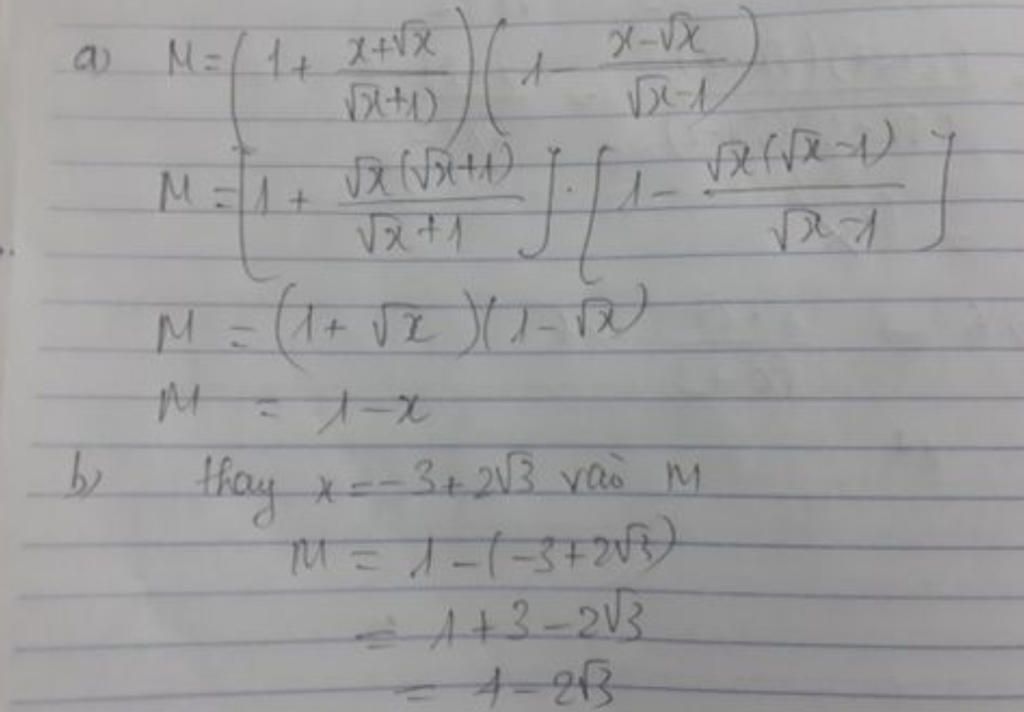 a) M = (1 + (x+√x)/(√x+1)) (1 - (x-√x)/(√x-1))
M = [1 + √x(√x+1)/(√x+1)] . [1 - √x(√x-1)/(√x-1)]
M = (1 + √x)(1 - √x)
M = 1 - x
b) thay x = -3 + 2√3 vào M
M = 1 - (-3 + 2√3)
= 1 + 3 - 2√3
= 4 - 2√3